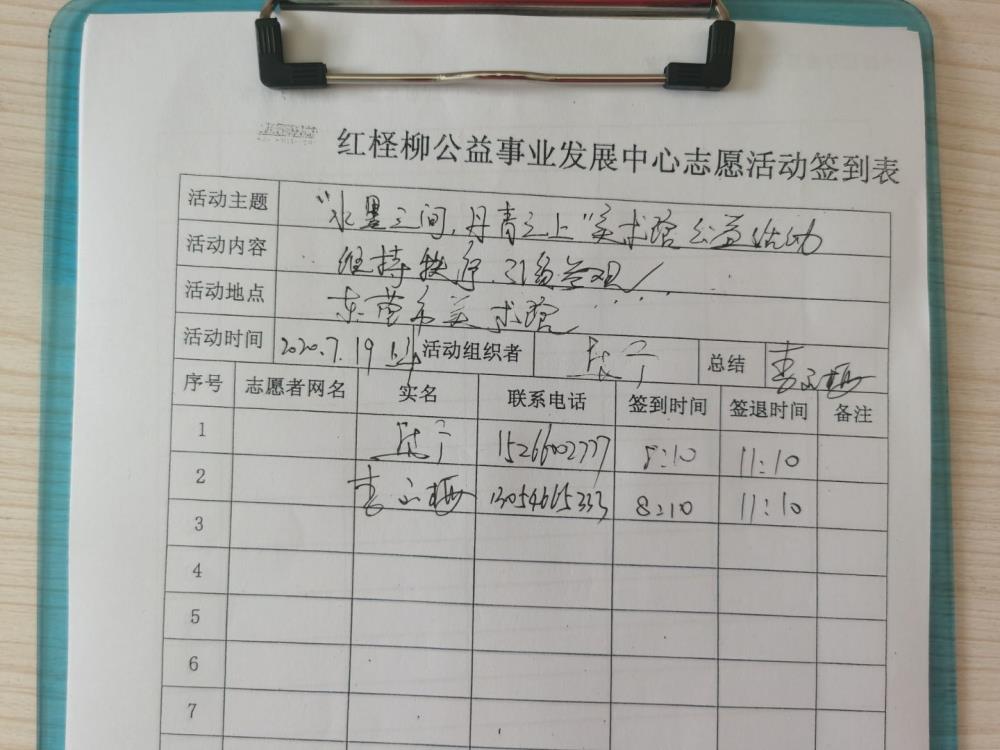 红柽柳公益事业发展中心志愿活动签到表
活动主题 "水墨之间,丹青之上"美术馆公益活动
活动内容 维持秩序、引领参观
活动地点 东营市美术馆
活动时间 2020.7.19 活动组织者 总结
序号 志愿者网名 实名 联系电话 签到时间 签退时间 备注
1 15266002777 8:10 11:10
2 13054665333 8:10 11:10
3
4
5
6
7